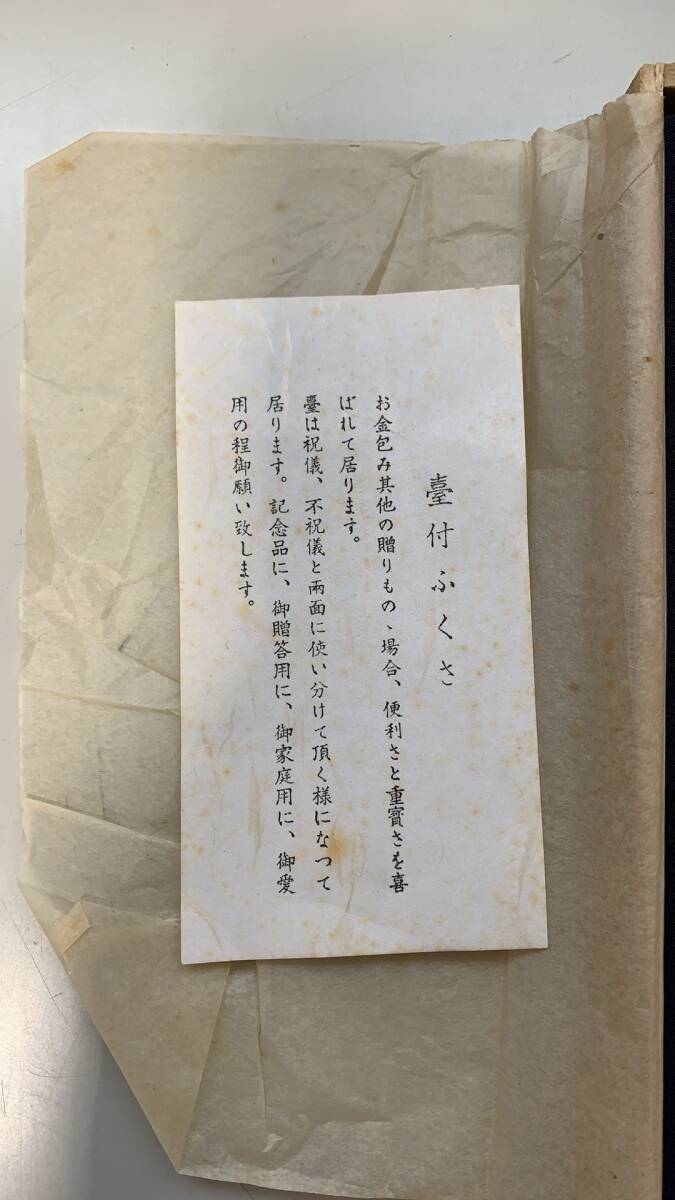 臺付ふくさ
お金包み其他の贈りものゝ場合、便利さと重寳さを喜
ばれて居ります。
臺は祝儀、不祝儀と兩面に使い分けて頂く様になつて
居ります。記念品に、御贈答用に、御家庭用に、御愛
用の程御願い致します。